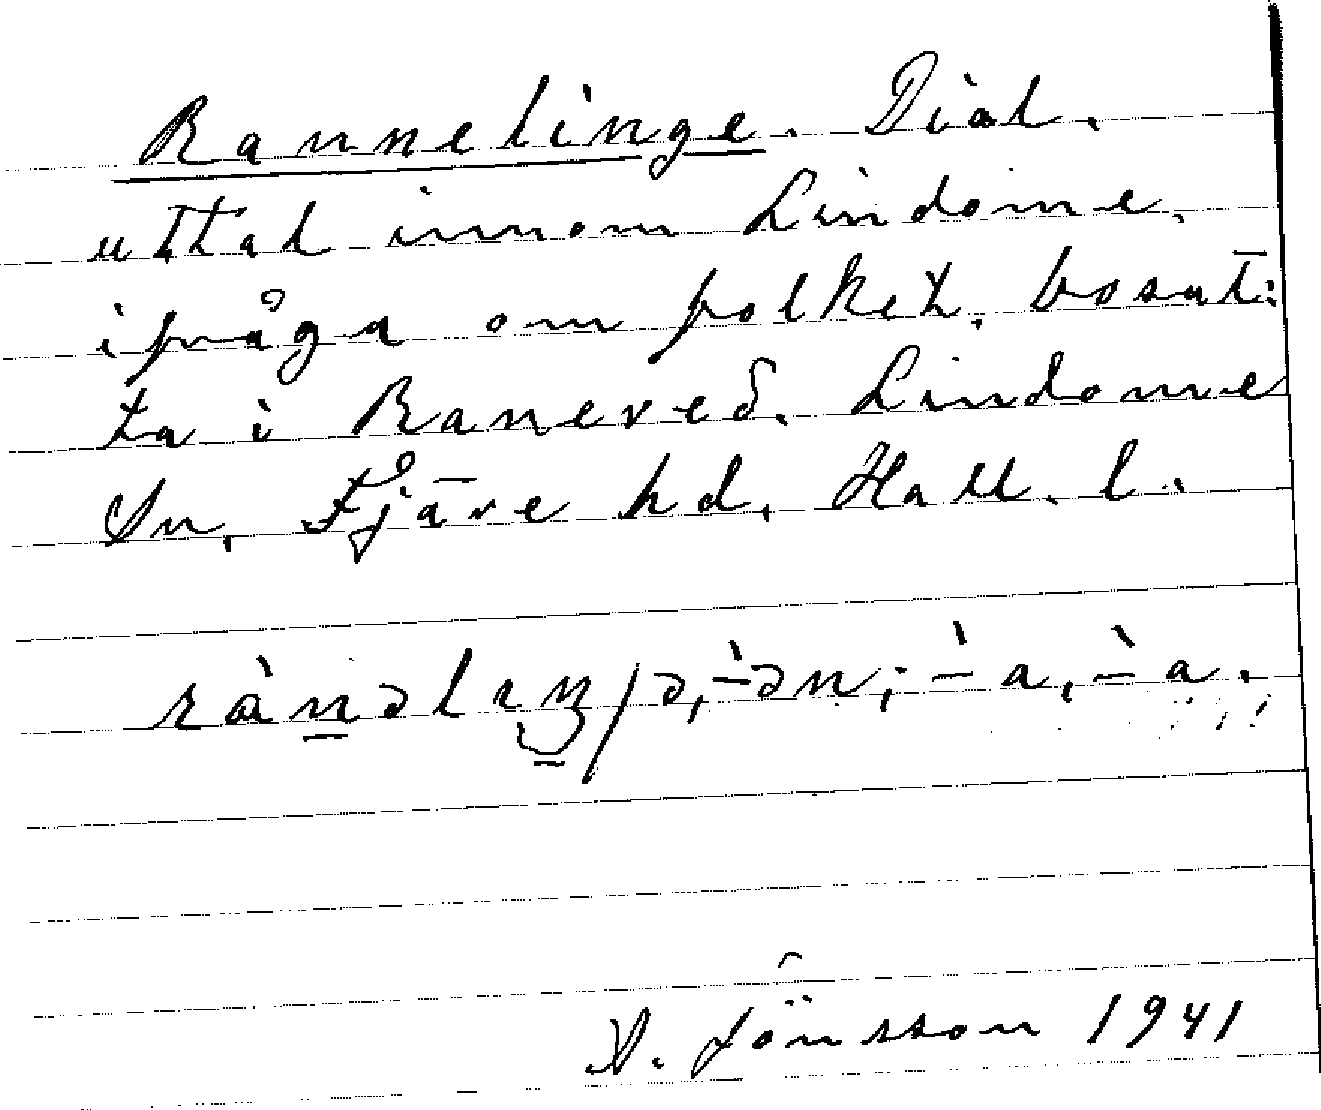 Rannelinge. Dial.
uttal innom Lindome,
ifråga om folket, bosat:
ta i Raneved. Lindome
Sn, Fjäre hd, Hall. l.
rànəlıŋ/ə,-̀ən; -̀a, -̀a.
A. Jönsson 1941